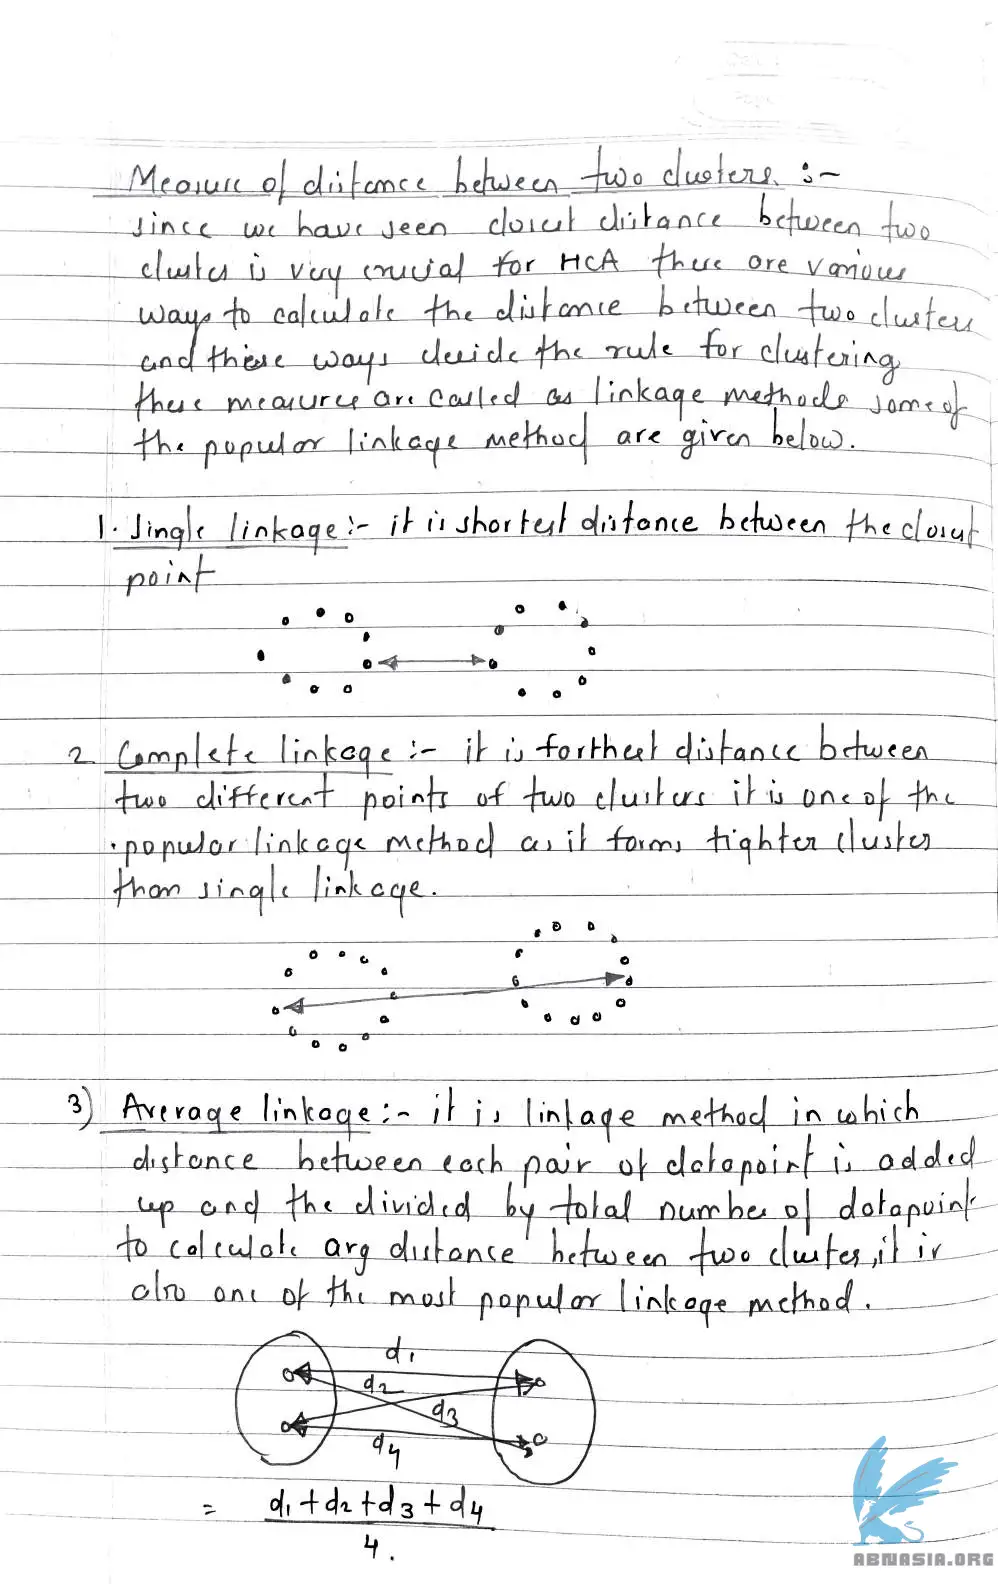 Measure of distance between two clusters :-
since we have seen closest distance between two
cluster is very crucial for HCA there are various
ways to calculate the distance between two clusters
and these ways decide the rule for clustering
these measures are called as linkage methods some of
the popular linkage method are given below.
1. Single linkage :- it is shortest distance between the closest
point
2 Complete linkage :- it is farthest distance between
two different points of two clusters it is one of the
popular linkage method as it forms tighter cluster
than single linkage.
3) Average linkage :- it is linkage method in which
distance between each pair of datapoint is added
up and the divided by total number of datapoint
to calculate avg distance between two cluster, it is
also one of the most popular linkage method.
d1
d2
d3
d4
= d1 + d2 + d3 + d4
4.
ABNASIA.ORG